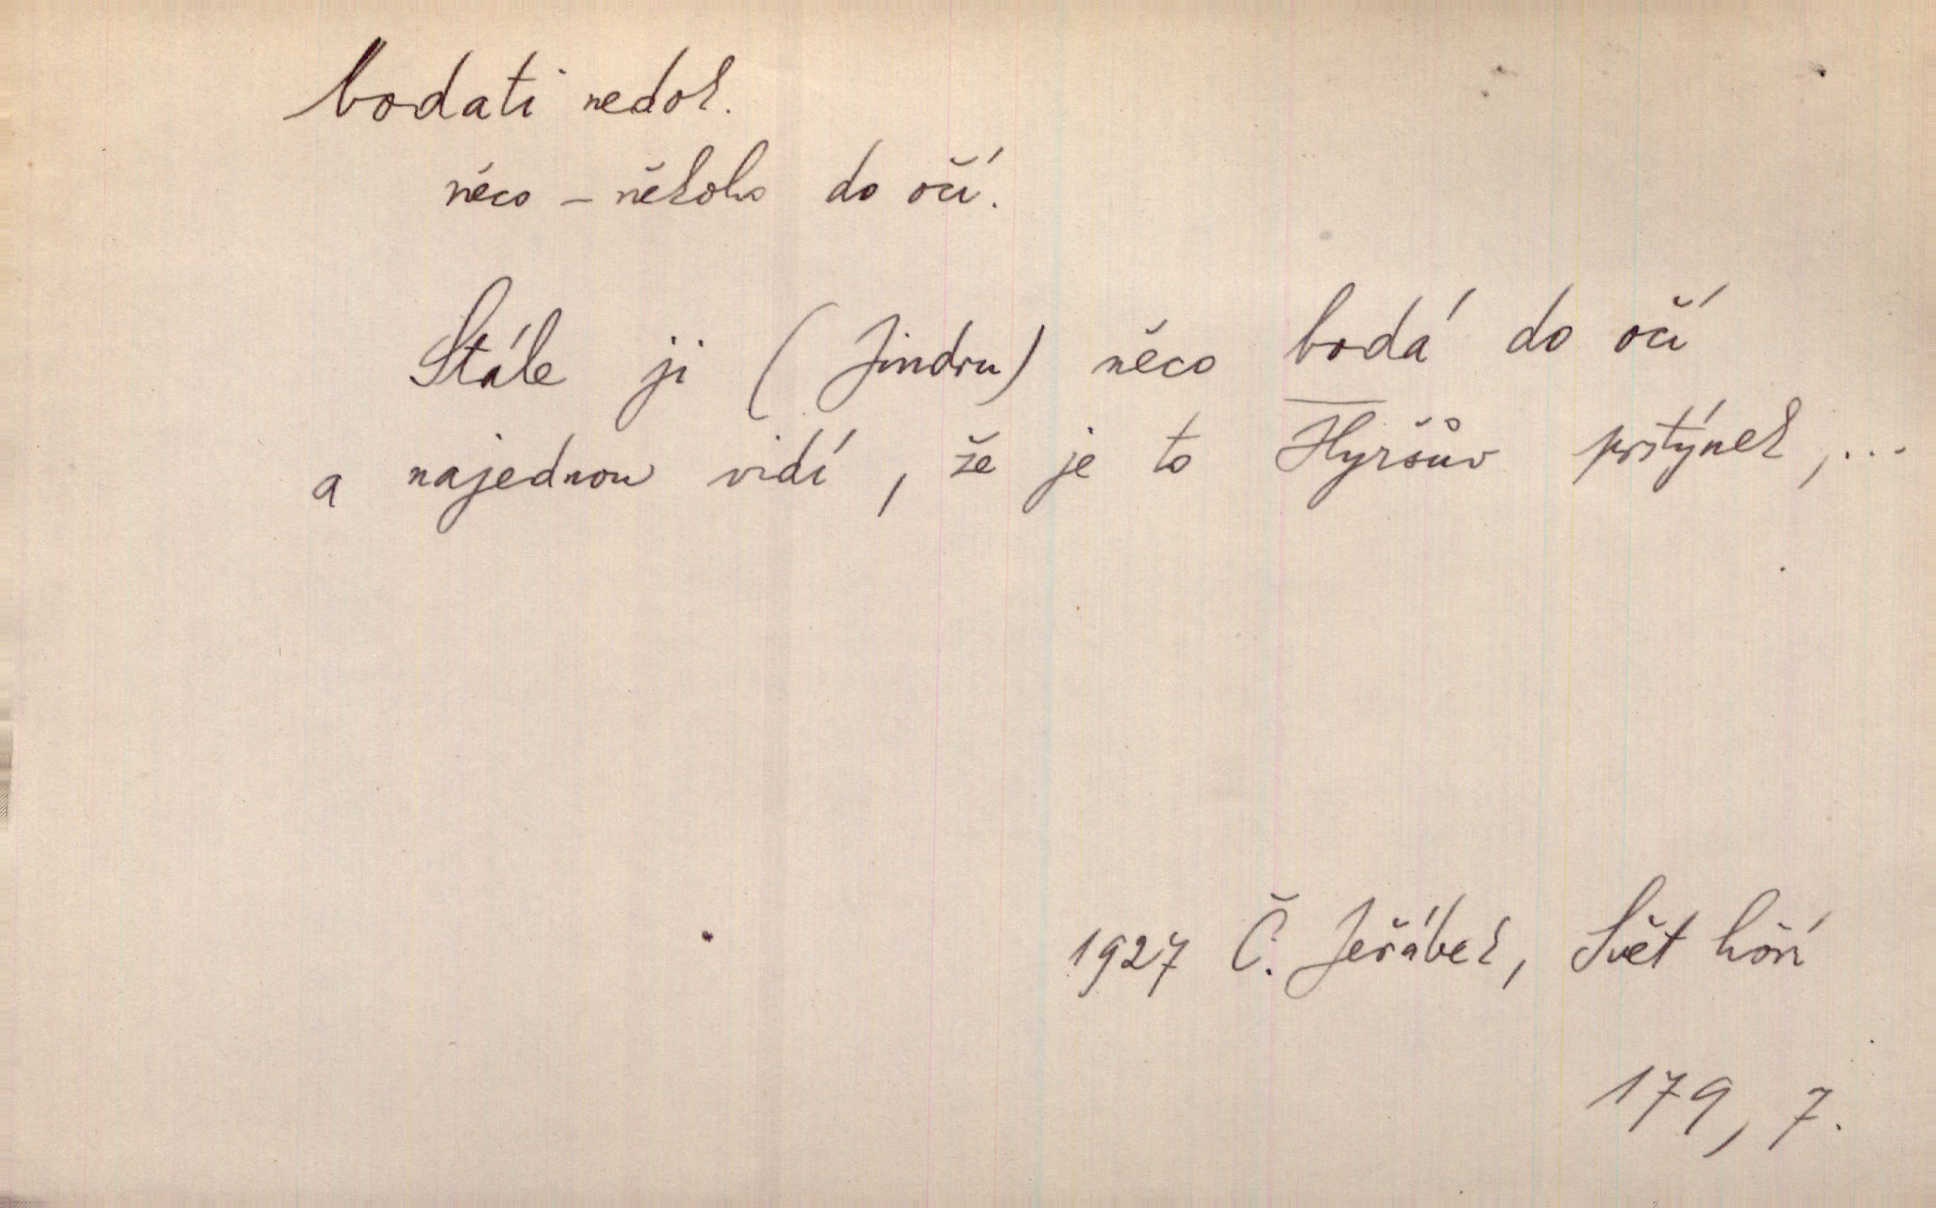 bodati nedok.
něco – někoho do očí.
Stále ji (Jindru) něco bodá do očí
a najednou vidí, že je to Hyršův prstýnek,...
1927 Č. Jeřábek, Svět hoří
179, 7.